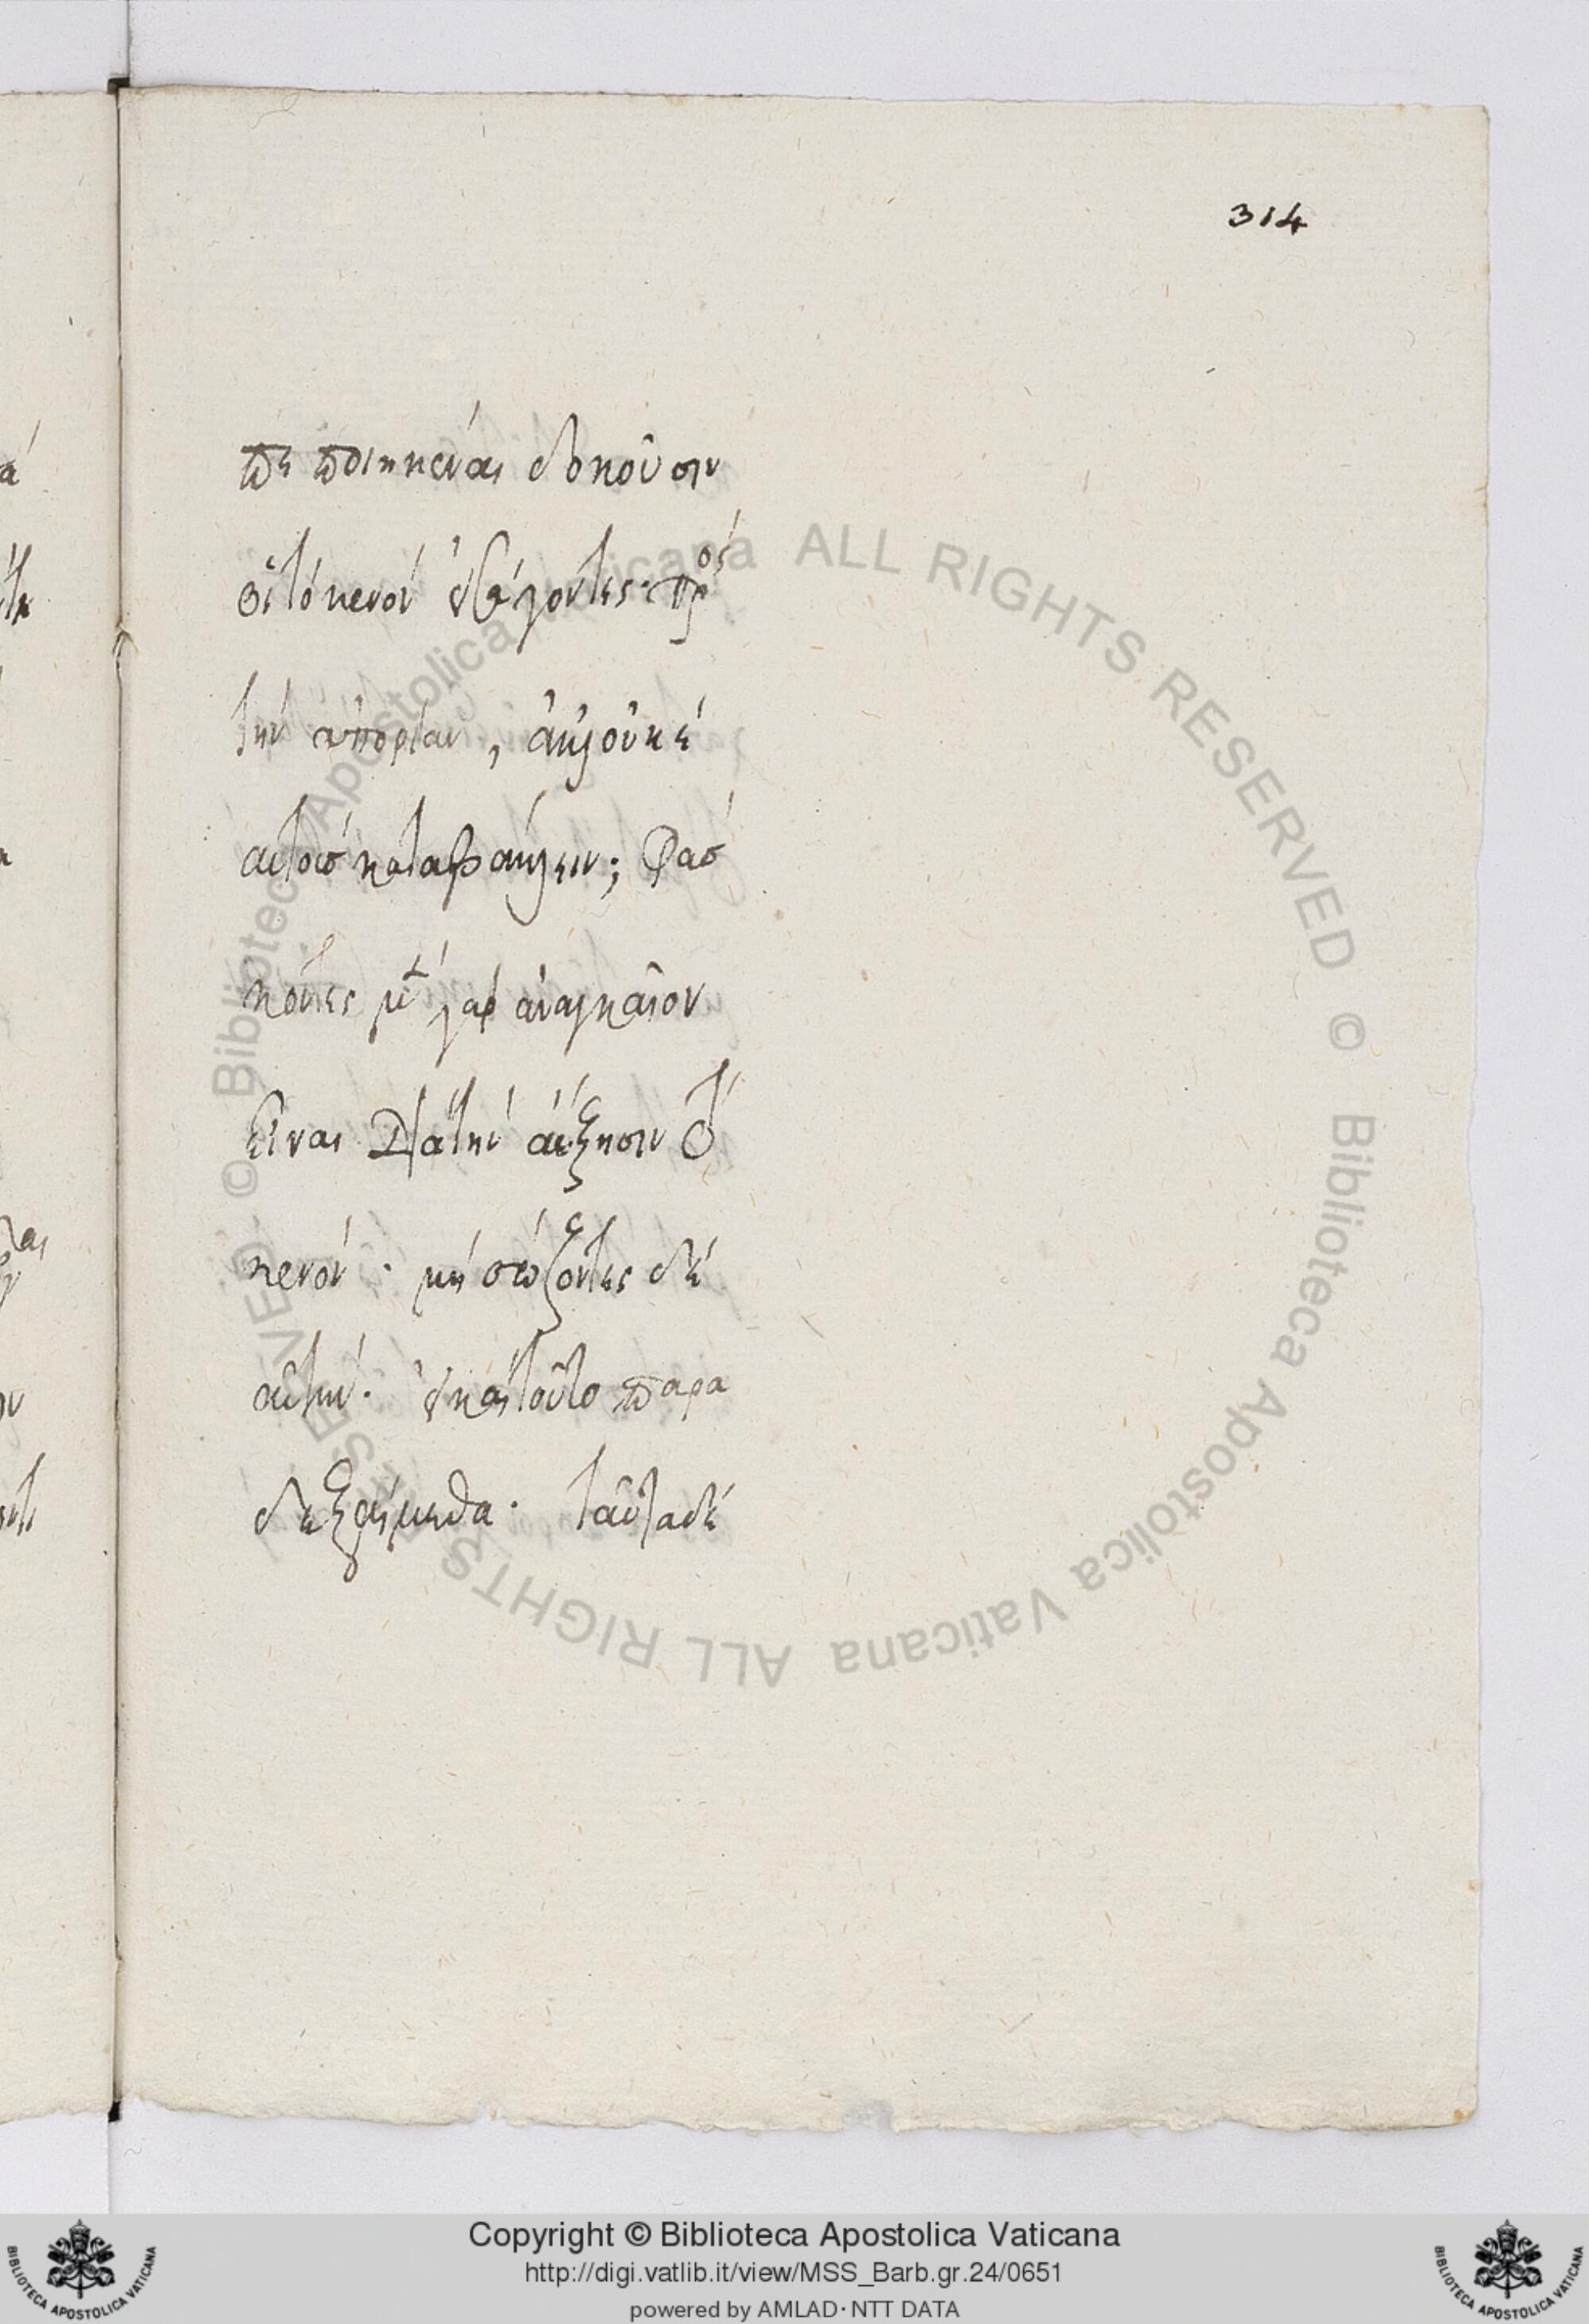 314
πεποιηκέναι δοκοῦσιν
οἱ τὸ κενὸν εἰσάγοντες πρὸς
τὴν ἀπορίαν, ἀλλ' οὐκ
αὐτοὶ κατα
φάσ
κοντες μὲν γὰρ ἀναγκαῖον
εἶναι διὰ τὴν αὔξησιν τὸ
κενόν· μὴ σώζοντες δὲ
αὐτήν· καὶ τοῦτο παρα
δεξαίμεθα· ταῦτα δὲ
© Biblioteca Apostolica Vaticana ALL RIGHTS RESERVED © Biblioteca Apostolica Vaticana ALL RIGHTS RESERVED
Copyright © Biblioteca Apostolica Vaticana
http://digi.vatlib.it/view/MSS_Barb.gr.24/0651
powered by AMLAD·NTT DATA
BIBLIOTECA APOSTOLICA VATICANA
BIBLIOTECA APOSTOLICA VATICANA